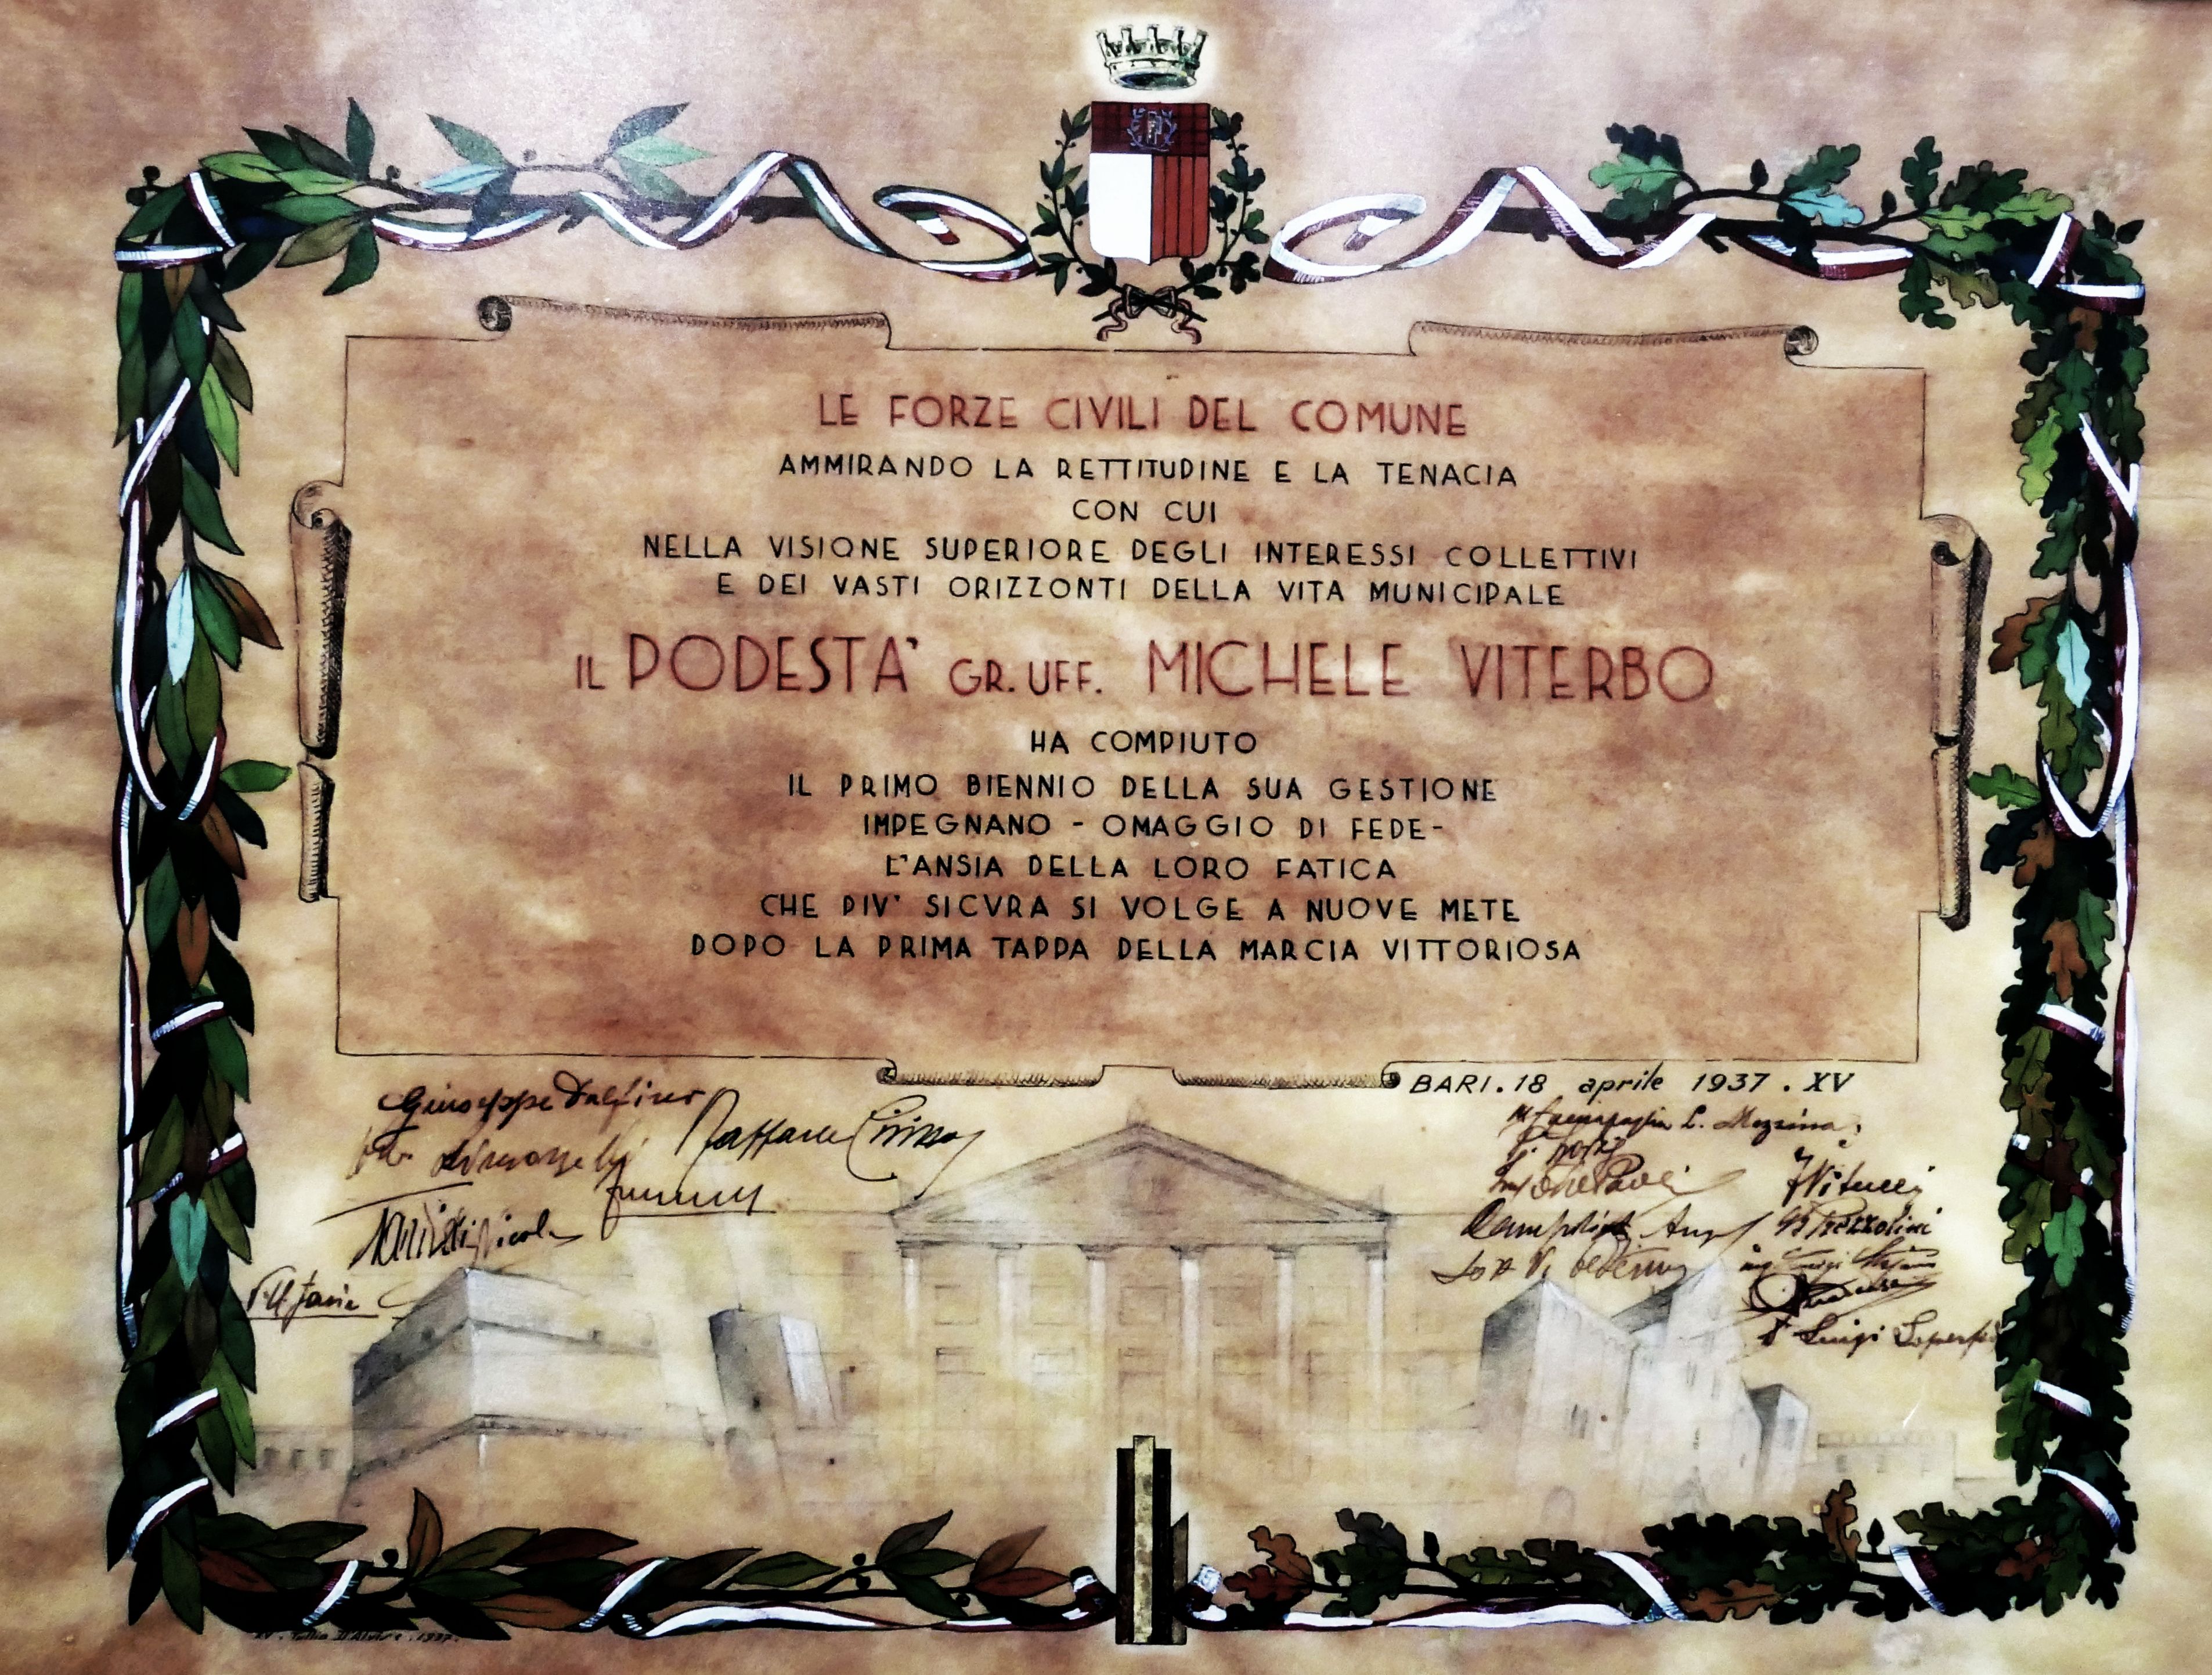 LE FORZE CIVILI DEL COMUNE
AMMIRANDO LA RETTITUDINE E LA TENACIA
CON CUI
NELLA VISIONE SUPERIORE DEGLI INTERESSI COLLETTIVI
E DEI VASTI ORIZZONTI DELLA VITA MUNICIPALE
IL PODESTA' GR. UFF. MICHELE VITERBO
HA COMPIUTO
IL PRIMO BIENNIO DELLA SUA GESTIONE
IMPEGNANO - OMAGGIO DI FEDE -
L'ANSIA DELLA LORO FATICA
CHE PIV' SICVRA SI VOLGE A NUOVE METE
DOPO LA PRIMA TAPPA DELLA MARCIA VITTORIOSA
BARI . 18 aprile 1937 . XV
Giuseppe
Raffaele
L. Messina
Nicola
Luigi
1937